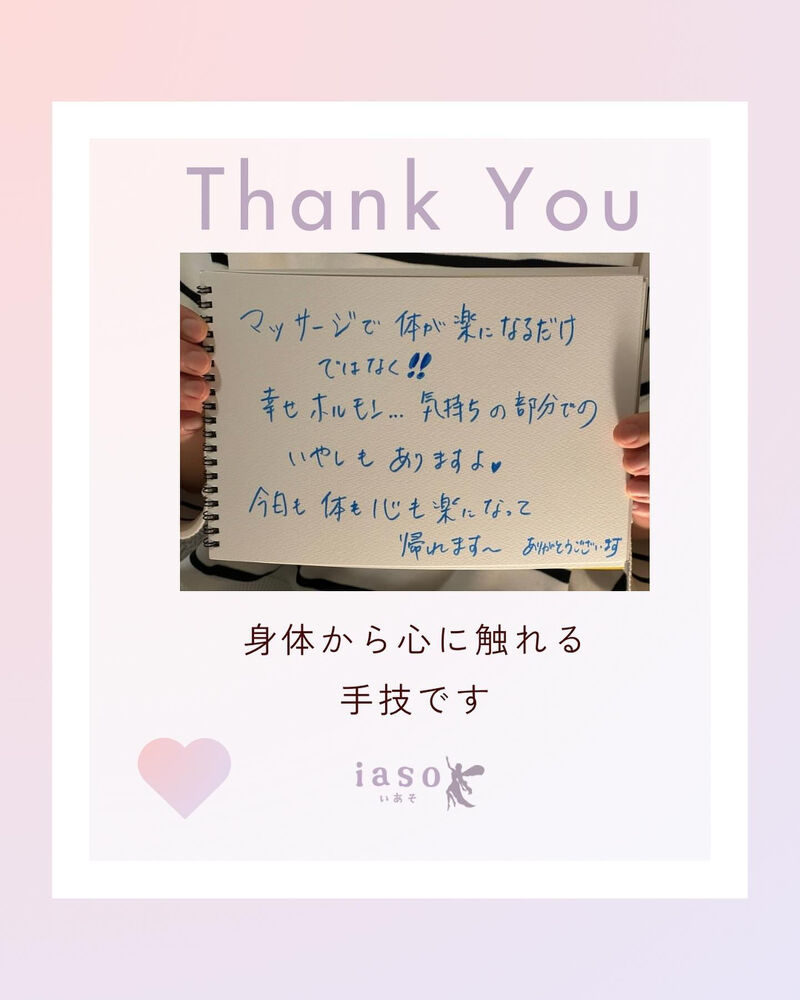 Thank You
マッサージで 体が楽になるだけ
ではなく!!
幸せホルモン... 気持ちの部分での
いやしも ありますよ♥
今日も 体も心も楽になって
帰れます〜 ありがとうございます
身体から心に触れる
手技です
iaso
いあそ